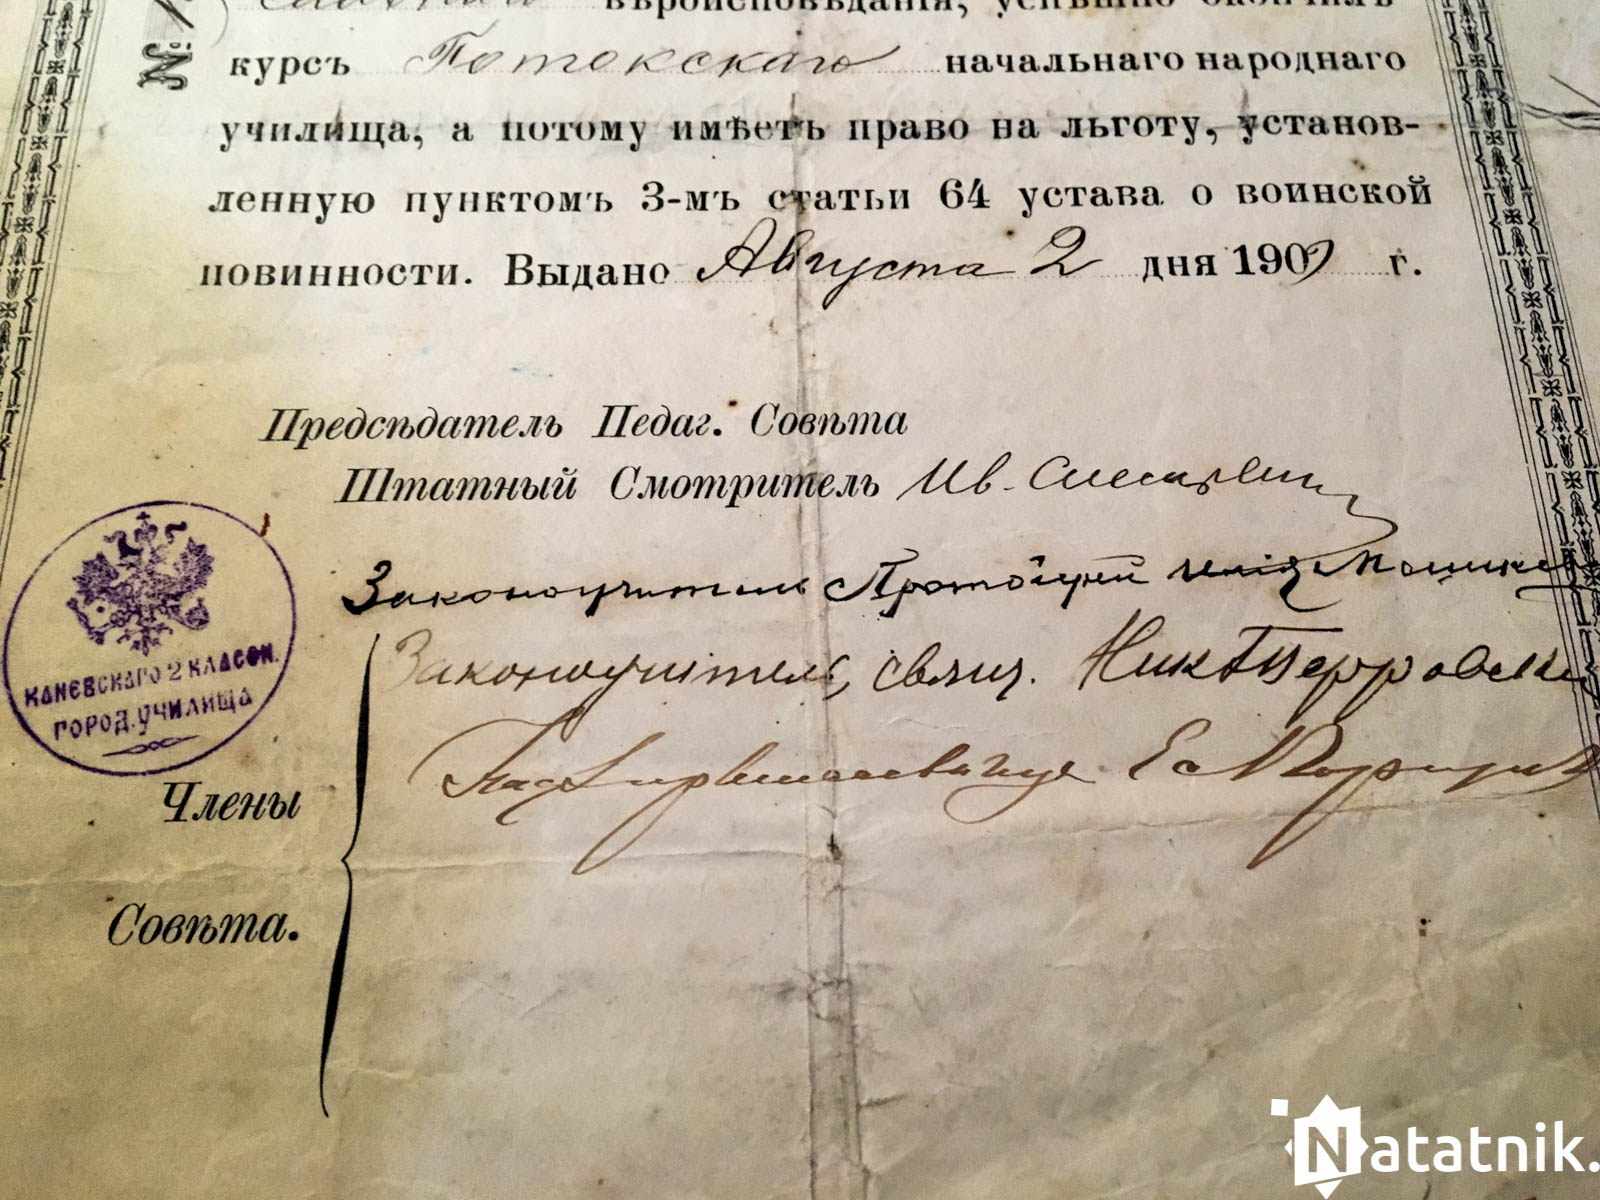 вѣроисповѣданія, успѣшно окончилъ
№
курсъ Потокскаго начальнаго народнаго
училища, а потому имѣетъ право на льготу, установ-
ленную пунктомъ 3-мъ статьи 64 устава о воинской
повинности. Выдано Августа 2 дня 1909 г.
Предсѣдатель Педаг. Совѣта
Штатный Смотритель Ив.
Законоучитель Протоіерей
Законоучитель, свящ. Ник.
КАНЕВСКАГО 2 КЛАССН.
ГОРОД. УЧИЛИЩА
Члены
Совѣта.
Natatnik.